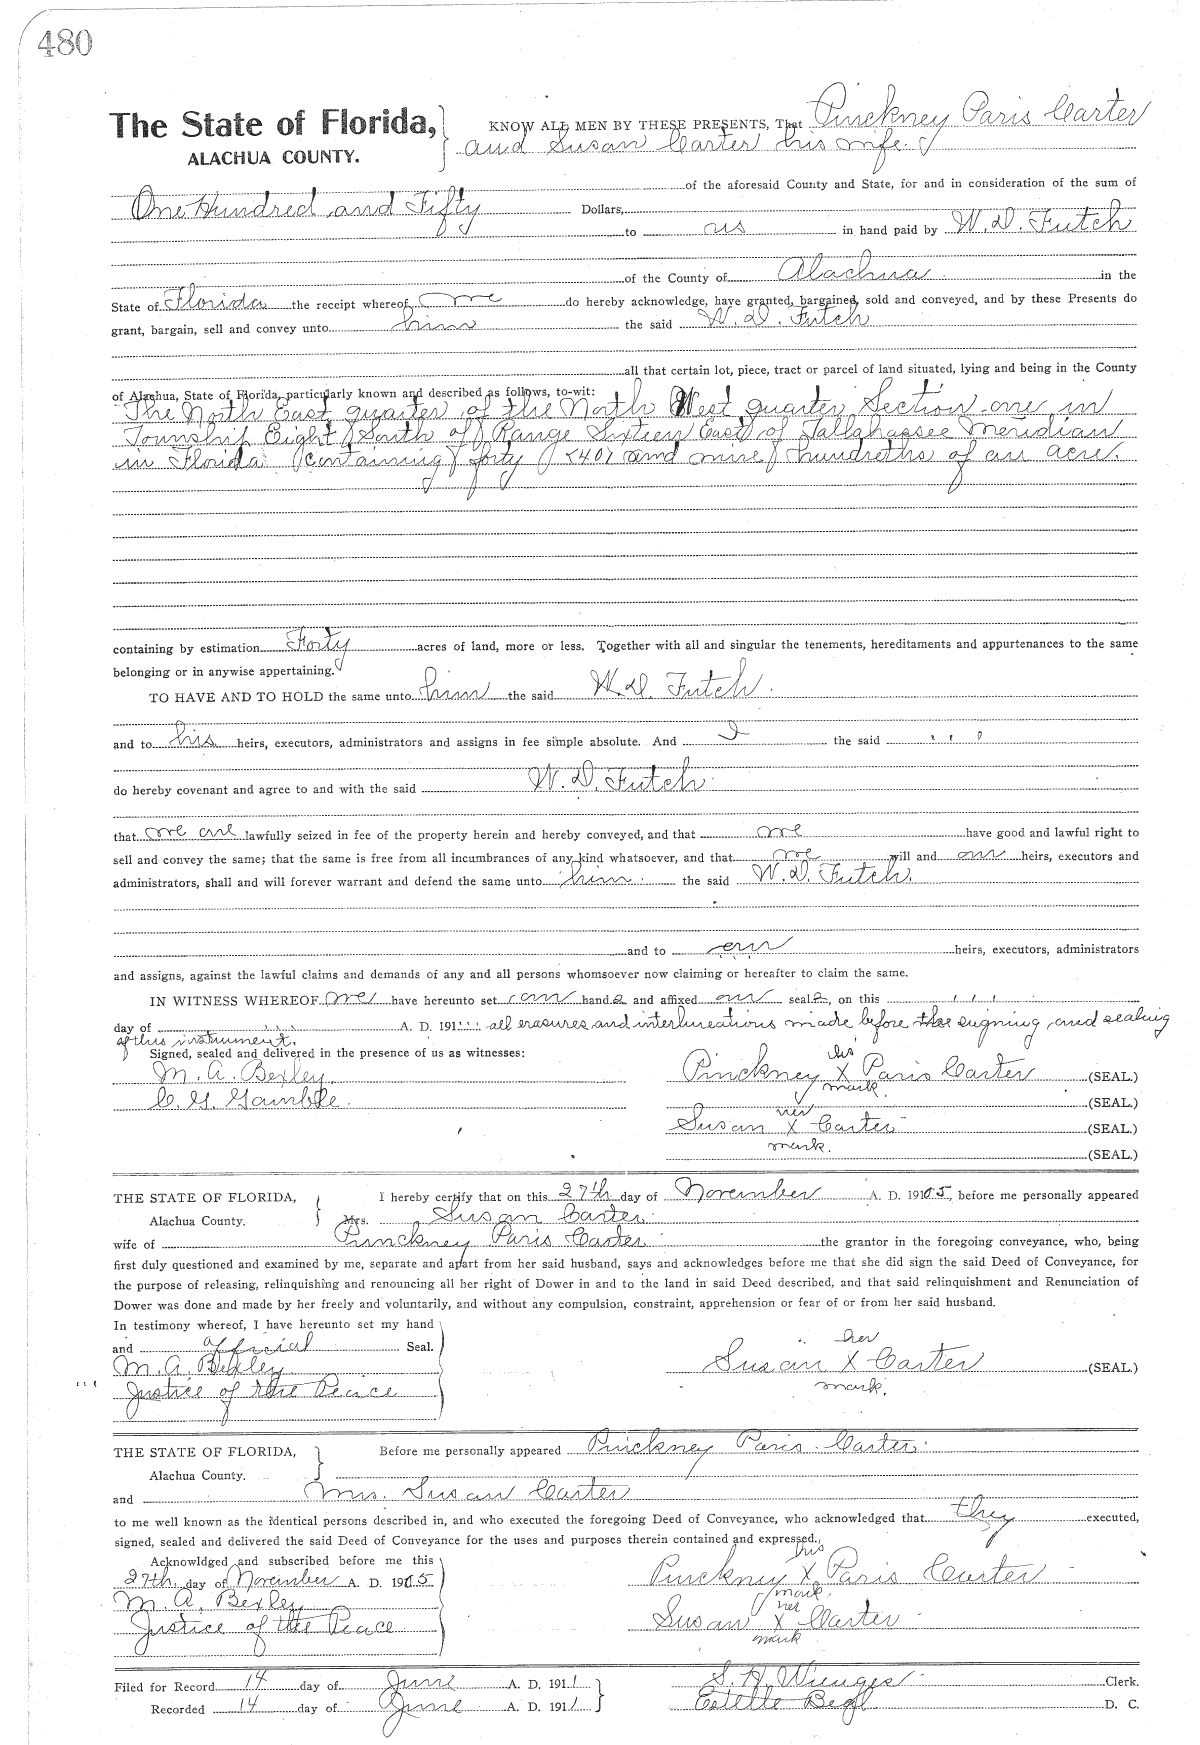 480
The State of Florida, KNOW ALL MEN BY THESE PRESENTS, That Pinckney Paris Carter
ALACHUA COUNTY. and Susan Carter his wife.
of the aforesaid County and State, for and in consideration of the sum of
One Hundred and Fifty Dollars,
to us in hand paid by W. D. Futch
of the County of Alachua in the
State of Florida the receipt whereof we do hereby acknowledge, have granted, bargained, sold and conveyed, and by these Presents do
grant, bargain, sell and convey unto him the said W. D. Futch
all that certain lot, piece, tract or parcel of land situated, lying and being in the County
of Alachua, State of Florida, particularly known and described as follows, to-wit:
The North East quarter of the North West quarter Section one in
Township Eight South of Range Sixteen East of Tallahassee Meridian
in Florida (containing) forty (40) and nine hundreths of an acre.
containing by estimation Forty acres of land, more or less. Together with all and singular the tenements, hereditaments and appurtenances to the same
belonging or in anywise appertaining.
TO HAVE AND TO HOLD the same unto him the said W. D. Futch.
and to his heirs, executors, administrators and assigns in fee simple absolute. And I the said " "
do hereby covenant and agree to and with the said W. D. Futch
that we are lawfully seized in fee of the property herein and hereby conveyed, and that we have good and lawful right to
sell and convey the same; that the same is free from all incumbrances of any kind whatsoever, and that we will and our heirs, executors and
administrators, shall and will forever warrant and defend the same unto him the said W. D. Futch.
and to our heirs, executors, administrators
and assigns, against the lawful claims and demands of any and all persons whomsoever now claiming or hereafter to claim the same.
IN WITNESS WHEREOF we have hereunto set our hands and affixed our seals, on this
day of A. D. 191 all erasures and interlineations made before the signing and sealing
of this instrument.
Signed, sealed and delivered in the presence of us as witnesses: his
M. A. Bexley Pinckney X Paris Carter (SEAL.)
mark
C. G. Gamble. (SEAL.)
her
Susan X Carter (SEAL.)
mark. (SEAL.)
THE STATE OF FLORIDA, I hereby certify that on this 27th day of November A. D. 19105, before me personally appeared
Alachua County. Mrs. Susan Carter
wife of Pinckney Paris Carter the grantor in the foregoing conveyance, who, being
first duly questioned and examined by me, separate and apart from her said husband, says and acknowledges before me that she did sign the said Deed of Conveyance, for
the purpose of releasing, relinquishing and renouncing all her right of Dower in and to the land in said Deed described, and that said relinquishment and Renunciation of
Dower was done and made by her freely and voluntarily, and without any compulsion, constraint, apprehension or fear of or from her said husband.
In testimony whereof, I have hereunto set my hand
and official Seal. her
M. A. Bexley Susan X Carter (SEAL.)
Justice of the Peace mark.
THE STATE OF FLORIDA, Before me personally appeared Pinckney Paris Carter
Alachua County.
and Mrs. Susan Carter
to me well known as the identical persons described in, and who executed the foregoing Deed of Conveyance, who acknowledged that they executed,
signed, sealed and delivered the said Deed of Conveyance for the uses and purposes therein contained and expressed.
Acknowldged and subscribed before me this his
27th day of November A. D. 19105 Pinckney X Paris Carter
mark.
M. A. Bexley her
Justice of the Peace Susan X Carter
mark
Filed for Record 14 day of June A. D. 1911 S. H. Wienges Clerk.
Recorded 14 day of June A. D. 1911 Estelle D. C.